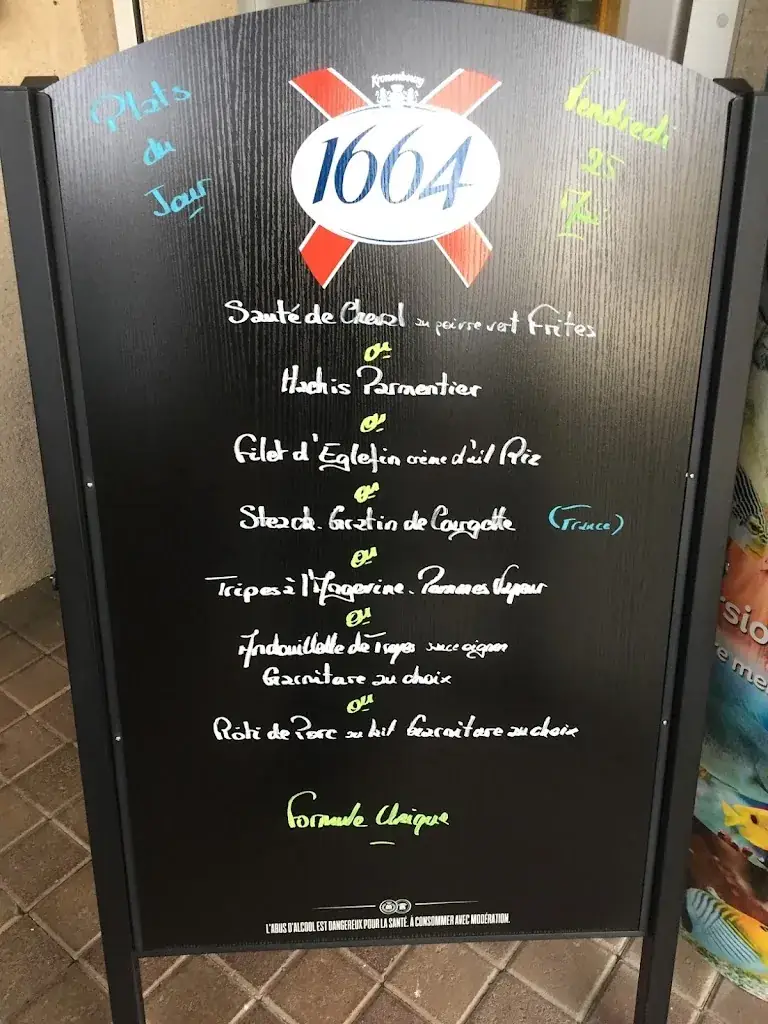 Plats
du
Jour
Kronenbourg
1664
Vendredi
25
Mai
Sauté de Cheval au poivre vert Frites
ou
Hachis Parmentier
ou
Filet d'Eglefin crème d'ail Riz
ou
Steack. Gratin de Courgette (France)
ou
Tripes à l'Angevine. Pommes Vapeur
ou
Andouillette de Troyes sauce oignon
Garniture au choix
ou
Rôti de Porc au lait Garniture au choix
Formule Unique
L'ABUS D'ALCOOL EST DANGEREUX POUR LA SANTÉ. À CONSOMMER AVEC MODÉRATION.